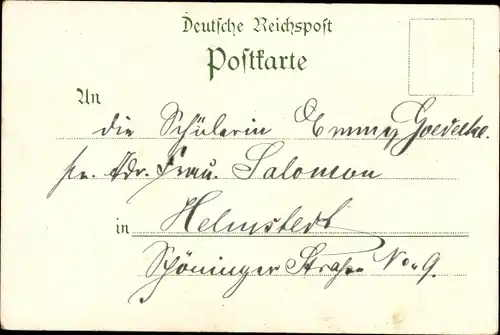 Deutsche Reichspost
Postkarte
An
die Schülerin Emmy Goedecke.
pr. Adr. Frau. Salomon
in Helmstedt
Schöninger Straße No 9.